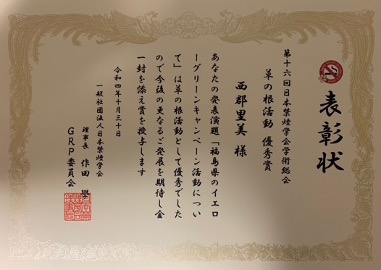 表彰状
第十六回日本禁煙学会学術総会
草の根活動 優秀賞
西郡里美 様
あなたの発表演題「福島県のイエロ
ーグリーンキャンペーン活動につい
て」は草の根活動として優秀でした
ので今後の更なるご発展を期待し金
一封を添え賞を授与します
令和四年十月三十日
一般社団法人日本禁煙学会
理事長 作田 學
GRP委員会